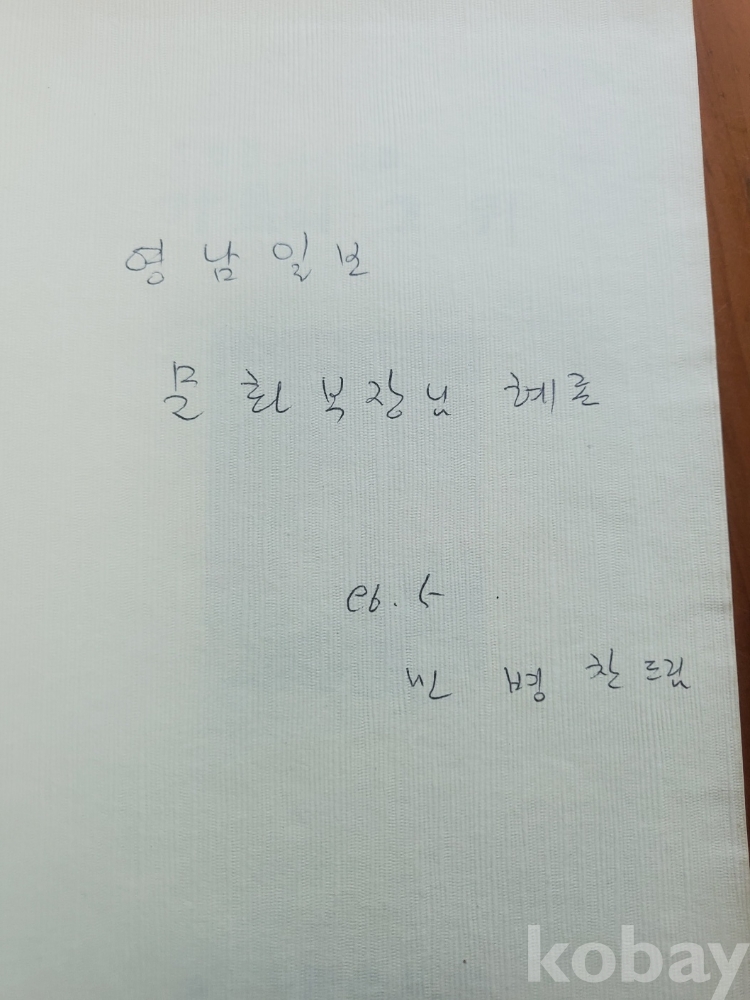 영남일보
문화부장님 혜존
96. 5.
병찬 드림
kobay